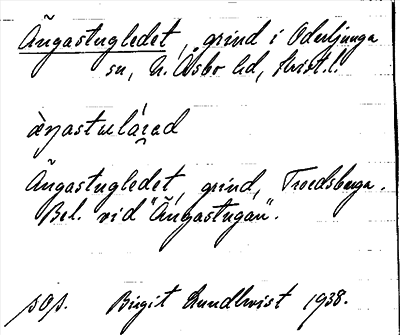 Ängastugledet, grind i Oderljunga
sn, N. Åsbo hd, Krist.l.
Ängastugledet, grind, Troedsberga.
Bel. vid "Ängastugan".
pop. Birgit Rundkvist 1938.